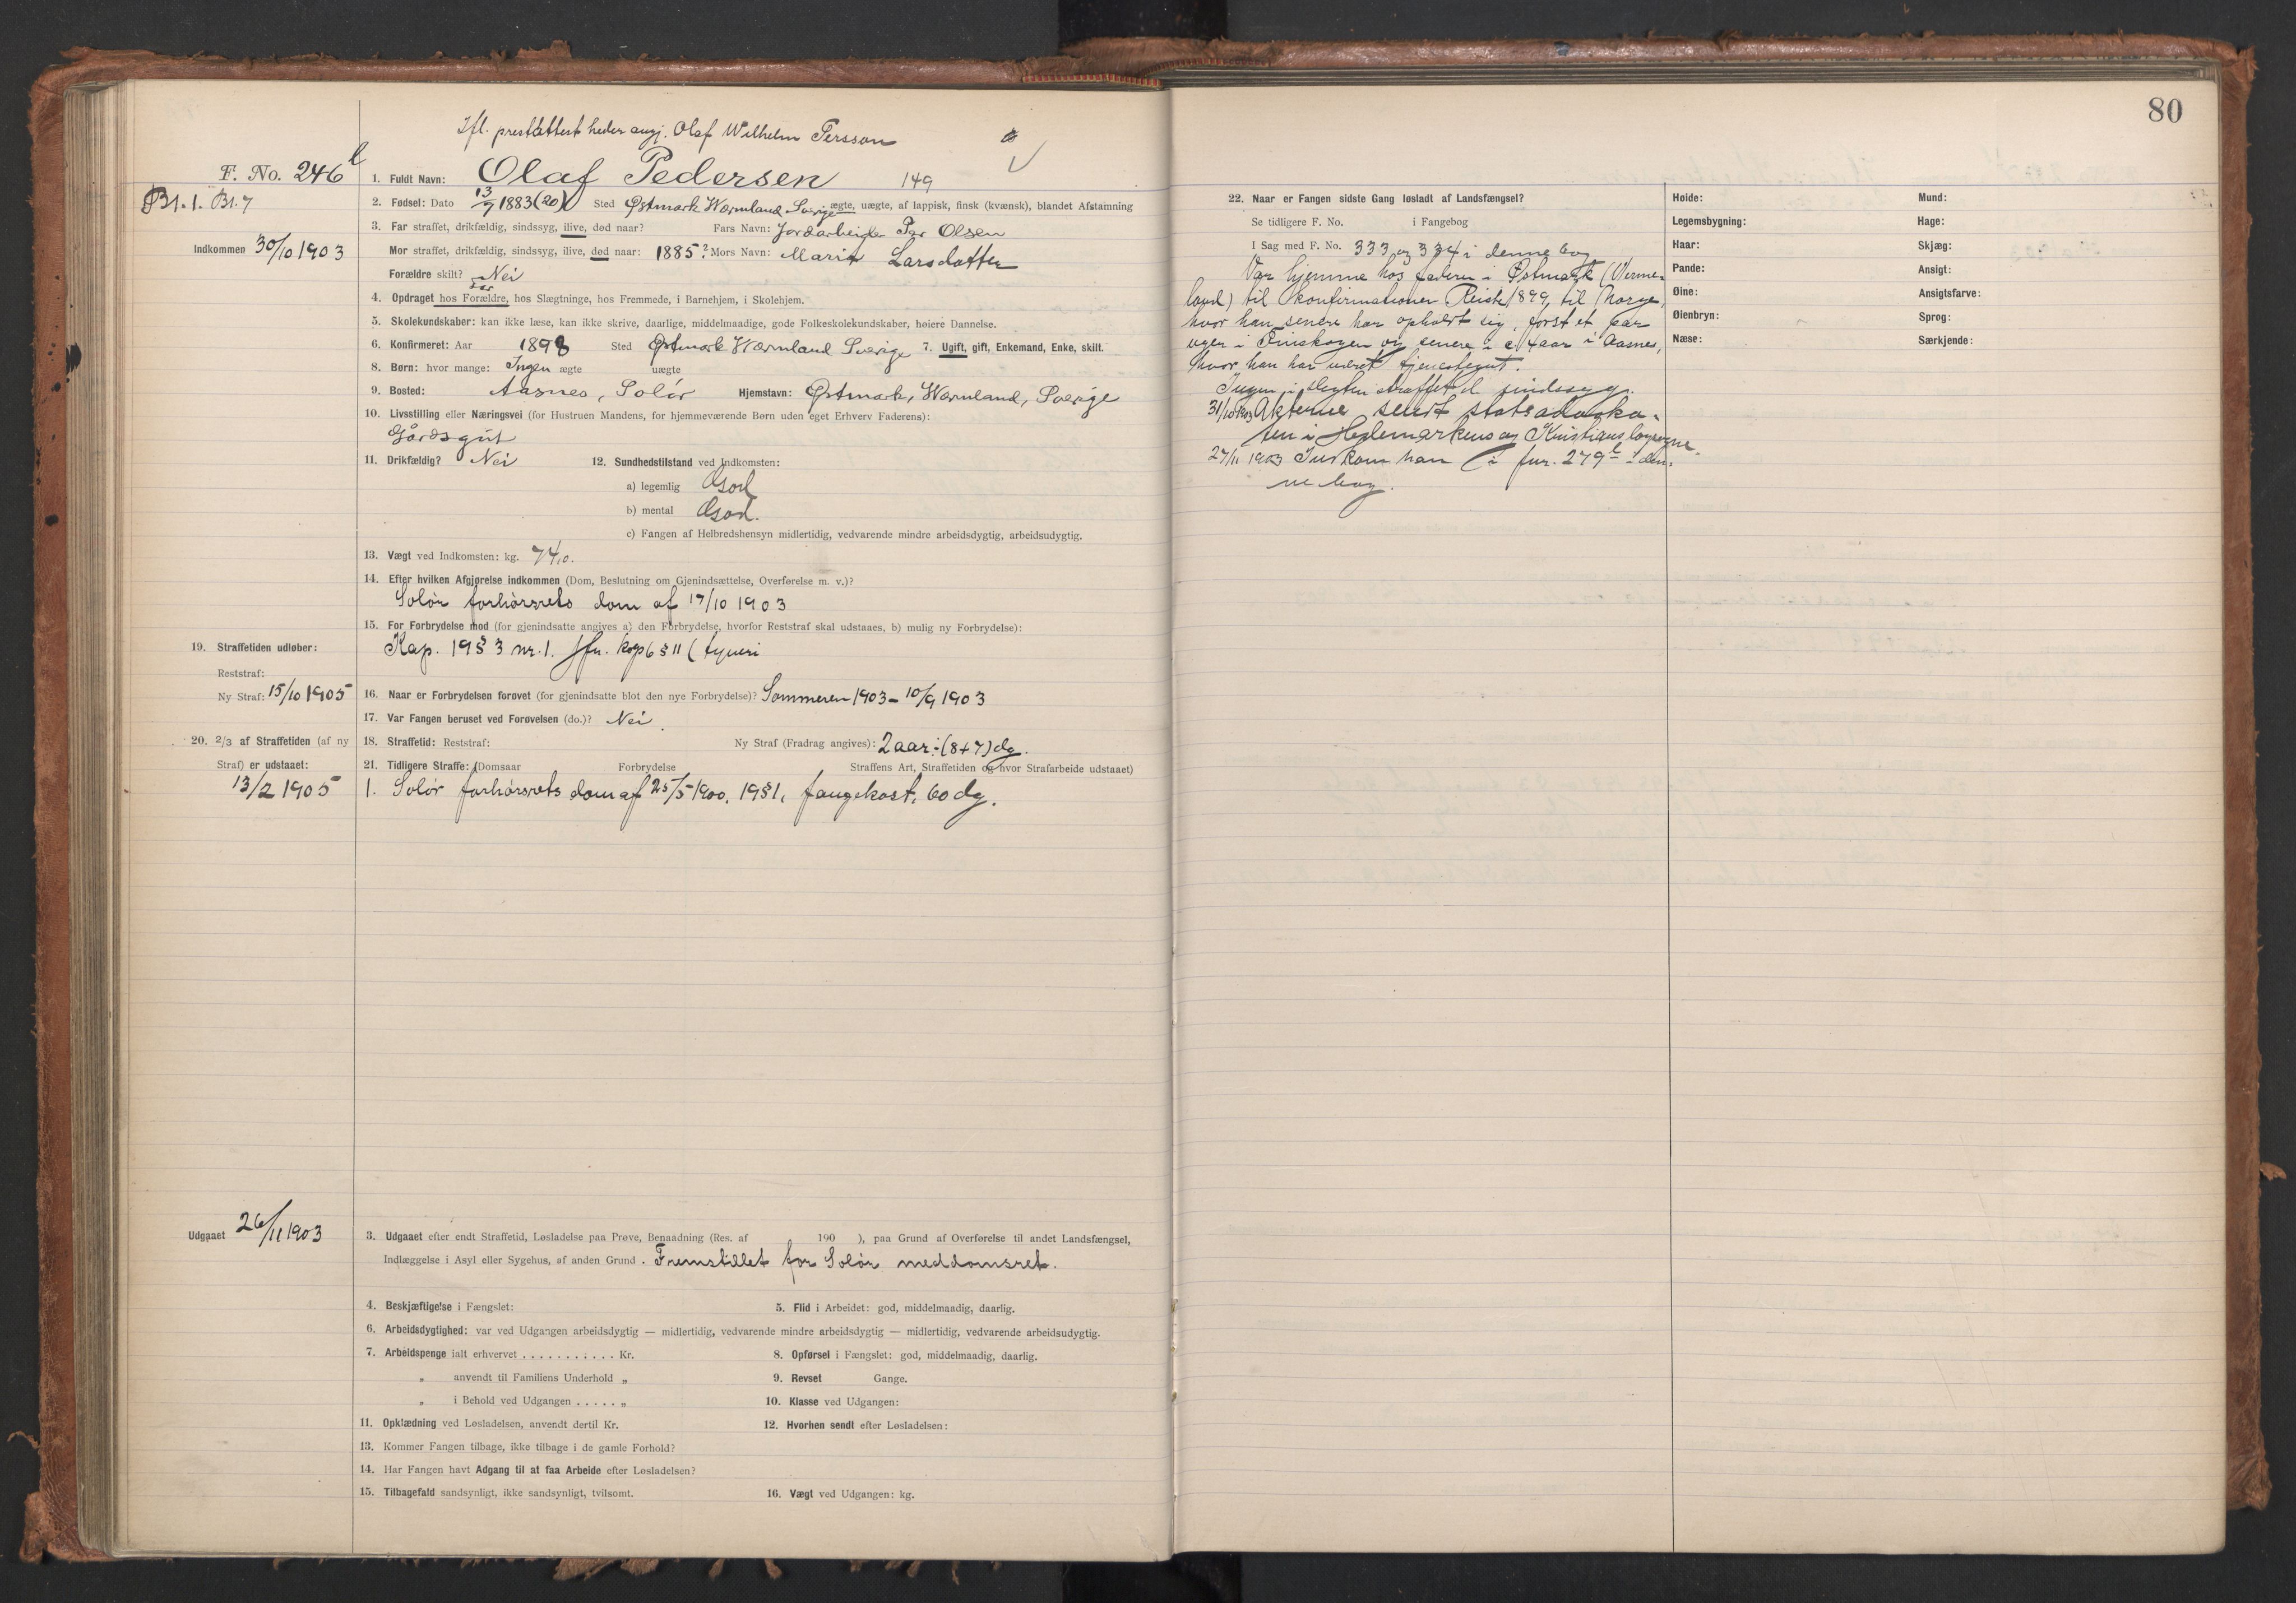 Ifl. prestattest heder angj. Olaf Wilhelm Persson
F. No. 246 b
1. Fuldt Navn: Olaf Pedersen 149
B1.1. B1.7
2. Fødsel: Dato 13/7 1883 (20) Sted Østmark Wermland Sverige ægte, uægte, af lappisk, finsk (kvænsk), blandet Afstamning
3. Far straffet, drikfældig, sindssyg, ilive, død naar? Fars Navn: Jordarbeider Per Olsen
Indkommen 30/10 1903
Mor straffet, drikfældig, sindssyg, ilive, død naar: 1885? Mors Navn: Marit Larsdatter
Forældre skilt? Nei
far
4. Opdraget hos Forældre, hos Slægtninge, hos Fremmede, i Barnehjem, i Skolehjem.
5. Skolekundskaber: kan ikke læse, kan ikke skrive, daarlige, middelmaadige, gode Folkeskolekundskaber, høiere Dannelse.
6. Konfirmeret: Aar 1898 Sted Østmark Wermland Sverige 7. Ugift, gift, Enkemand, Enke, skilt.
8. Børn: hvor mange: Ingen ægte uægte
9. Bosted: Aasnes, Solør Hjemstavn: Østmark, Wermland, Sverige
10. Livsstilling eller Næringsvei (for Hustruen Mandens, for hjemmeværende Børn uden eget Erhverv Faderens):
Gårdsgut
11. Drikfældig? Nei 12. Sundhedstilstand ved Indkomsten:
a) legemlig God
b) mental God.
c) Fangen af Helbredshensyn midlertidig, vedvarende mindre arbeidsdygtig, arbeidsudygtig.
13. Vægt ved Indkomsten: kg. 74,0.
14. Efter hvilken Afgjørelse indkommen (Dom, Beslutning om Gjenindsættelse, Overførelse m. v.)?
Solør forhørsrets dom af 17/10 1903
15. For Forbrydelse mod (for gjenindsatte angives a) den Forbrydelse, hvorfor Reststraf skal udstaaes, b) mulig ny Forbrydelse):
Kap. 19 § 3 nr. 1. jfr. kap 6 § 11 (tyveri
19. Straffetiden udløber:
Reststraf:
Ny Straf: 15/10 1905
16. Naar er Forbrydelsen forøvet (for gjenindsatte blot den nye Forbrydelse)? Sommeren 1903 - 10/9 1903
17. Var Fangen beruset ved Forøvelsen (do.)? Nei.
20. 2/3 af Straffetiden (af ny
18. Straffetid: Reststraf: Ny Straf (Fradrag angives): 2 aar ÷ (8+7) dg.
Straf) er udstaaet:
21. Tidligere Straffe: (Domsaar Forbrydelse Straffens Art, Straffetiden og hvor Strafarbeide udstaaet)
13/2 1905
1. Solør forhørsrets dom af 25/5 1900. 19 § 1, fangekost, 60 dg.
Udgaaet 26/11 1903
3. Udgaaet efter endt Straffetid, Løsladelse paa Prøve, Benaadning (Res. af 190 ), paa Grund af Overførelse til andet Landsfængsel,
Indlæggelse i Asyl eller Sygehus, af anden Grund. Fremstillet for Solør meddomsret.
4. Beskjæftigelse i Fængslet: 5. Flid i Arbeidet: god, middelmaadig, daarlig.
6. Arbeidsdygtighed: var ved Udgangen arbeidsdygtig — midlertidig, vedvarende mindre arbeidsdygtig — midlertidig, vedvarende arbeidsudygtig.
7. Arbeidspenge ialt erhvervet . . . . . . . . . . . Kr. 8. Opførsel i Fængslet: god, middelmaadig, daarlig.
„ anvendt til Familiens Underhold „ 9. Revset Gange.
„ i Behold ved Udgangen . . . . . „ 10. Klasse ved Udgangen:
11. Opklædning ved Løsladelsen, anvendt dertil Kr. 12. Hvorhen sendt efter Løsladelsen:
13. Kommer Fangen tilbage, ikke tilbage i de gamle Forhold?
14. Har Fangen havt Adgang til at faa Arbeide efter Løsladelsen?
15. Tilbagefald sandsynligt, ikke sandsynligt, tvilsomt. 16. Vægt ved Udgangen: kg.
80
22. Naar er Fangen sidste Gang løsladt af Landsfængsel?
Se tidligere F. No. i Fangebog
I Sag med F. No. 333 og 334 i denne bog
Var hjemme hos faderen i Østmark (Verme-
land) til konfirmationen. Reiste 1899 til Norge,
hvor han senere har opholdt sig, først et par
uger i Finskogen og senere i c. 4 aar i Aasnes,
hvor han har været tjenestegut.
Ingen i slegten straffet el sindssyg.
31/10 1903 Akterne sendt statsadvoka-
ten i Hedemarkens og Kristians lagsogne.
27/11 1903 Indkom han i fnr. 279 b i den-
ne bog.
Høide:
Legemsbygning:
Haar:
Pande:
Øine:
Øienbryn:
Næse:
Mund:
Hage:
Skjæg:
Ansigt:
Ansigtsfarve:
Sprog:
Særkjende: